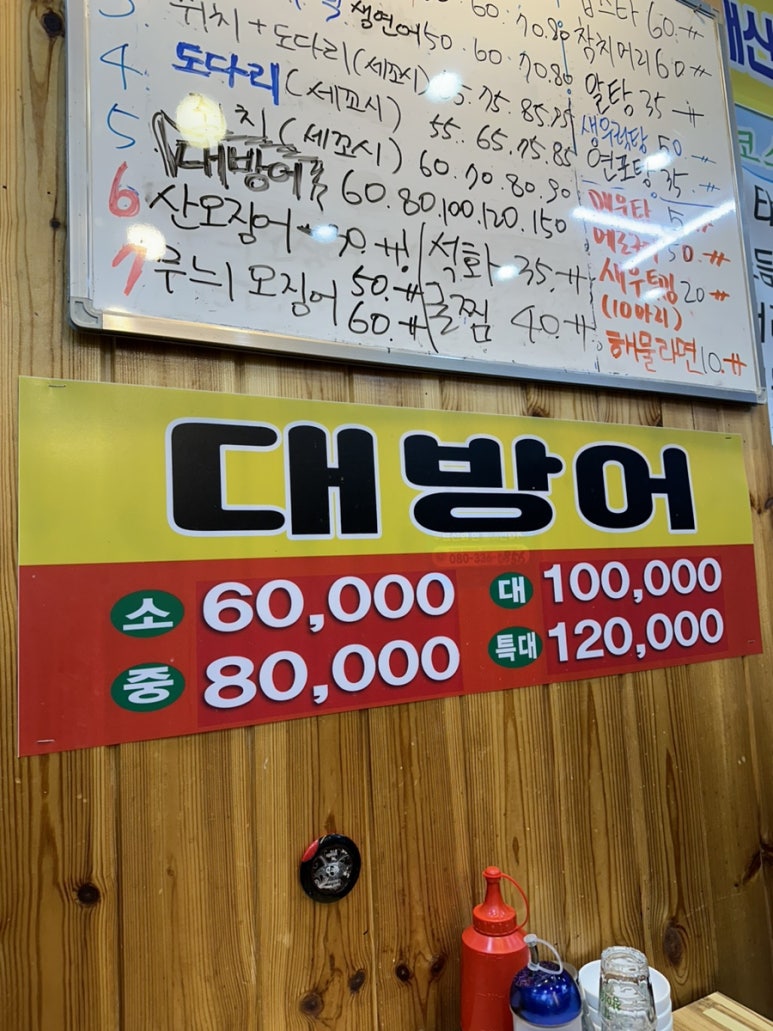 생연어 50. 60. 70. 80
쥐치 + 도다리(세꼬시) 75. 85. 95
4. 도다리(세꼬시) 55. 65. 75. 85
5 (세꼬시) 60. 70. 80. 90
대방어 60. 80. 100. 120. 150
6 산오징어
7 루늬 오징어 50.
60.
석화 35.
굴찜 40.
60.
참치머리 60.
알탕 35
새우럭탕 50.
연포탕 35.
매우탕
50.
새우튀김 20
(10마리)
해물라면 10.
대방어
소 60,000
중 80,000
대 100,000
특대 120,000